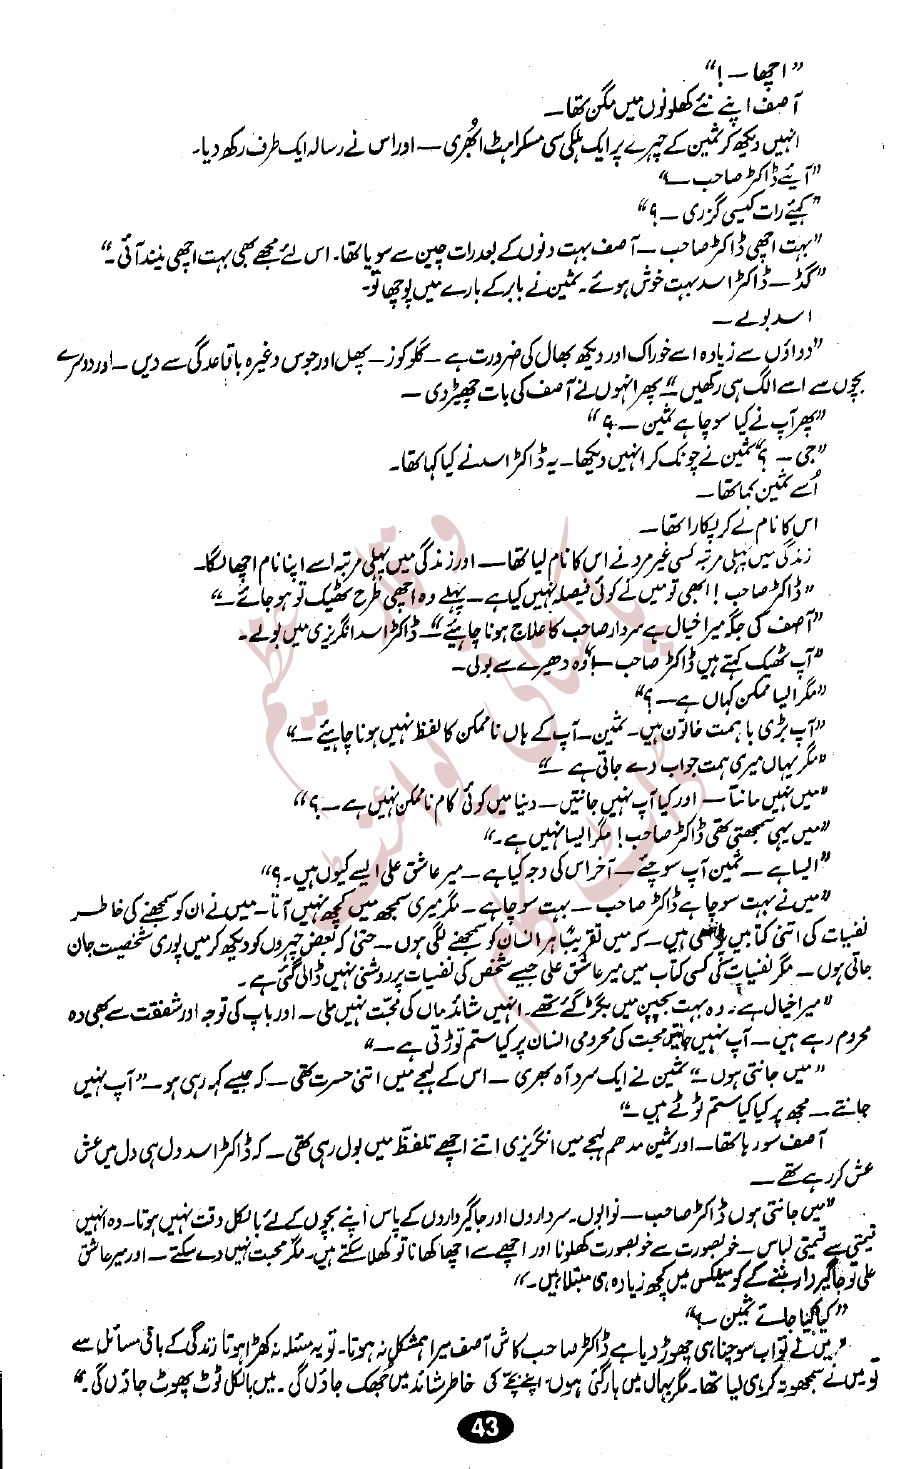 ”اچھا — !“
آصف اپنے نئے کھلونوں میں مگن تھا —
انہیں دیکھ کر ثمین کے چہرے پر ایک ہلکی سی مسکراہٹ ابھری — اور اس نے رسالہ ایک طرف رکھ دیا۔
”آیئے ڈاکٹر صاحب —“
”کہیئے رات کیسی گزری — ؟“
”بہت اچھی ڈاکٹر صاحب — آصف بہت دنوں کے بعد رات چین سے سویا تھا۔ اس لئے مجھے بھی بہت اچھی نیند آئی —“
”گڈ — ڈاکٹر اسد بہت خوش ہوئے۔ ثمین نے بابر کے بارے میں پوچھا تو۔
اسد بولے —
”دواؤں سے زیادہ اسے خوراک اور دیکھ بھال کی ضرورت ہے — گلوکوز — پھل اور جوس وغیرہ باقاعدگی سے دیں — اور دوسرے
بچوں سے اسے الگ ہی رکھیں —“ پھر انہوں نے آصف کی بات چھیڑ دی —
”پھر آپ نے کیا سوچا ہے ثمین — ؟“
”جی — ؟“ ثمین نے چونک کر انہیں دیکھا — یہ ڈاکٹر اسد نے کیا کہا تھا۔
اُسے ثمین کہا تھا —
اس کا نام لے کر پکارا تھا —
زندگی میں پہلی مرتبہ کسی غیر مرد نے اس کا نام لیا تھا — اور زندگی میں پہلی مرتبہ اسے اپنا نام اچھا لگا۔
”ڈاکٹر صاحب ! ابھی تو میں نے کوئی فیصلہ نہیں کیا ہے — پہلے وہ اچھی طرح ٹھیک تو ہو جائے —“
”آصف کی جگہ میرا خیال ہے سردار صاحب کا علاج ہونا چاہیئے —“ ڈاکٹر اسد انگریزی میں بولے۔
”آپ ٹھیک کہتے ہیں ڈاکٹر صاحب —“ وہ دھیرے سے بولی۔
”مگر ایسا ممکن کہاں ہے — ؟“
”آپ بڑی باہمت خاتون ہیں — ثمین — آپ کے ہاں ناممکن کا لفظ نہیں ہونا چاہیئے —“
”مگر یہاں میری ہمت جواب دے جاتی ہے —“
”میں نہیں مانتا — اور کیا آپ نہیں جانتیں — دنیا میں کوئی کام ناممکن نہیں ہے — ؟“
”میں یہی سمجھتی تھی ڈاکٹر صاحب ! مگر ایسا نہیں ہے —“
”ایسا ہے — ثمین آپ سوچئے — آخر اس کی وجہ کیا ہے — میر عاشق علی ایسے کیوں ہیں — ؟“
”میں نے بہت سوچا ہے ڈاکٹر صاحب — بہت سوچا ہے — مگر میری سمجھ میں کچھ نہیں آتا — میں نے ان کو سمجھنے کی خاطر
نفسیات کی اتنی کتابیں پڑھی ہیں — کہ میں تقریباً ہر انسان کو سمجھنے لگی ہوں — حتیٰ کہ بعض چہروں کو دیکھ کر میں پوری شخصیت جان
جاتی ہوں — مگر نفسیات کی کسی کتاب میں میر عاشق علی جیسے شخص کی نفسیات پر روشنی نہیں ڈالی گئی ہے۔
”میرا خیال ہے — وہ بہت بچپن میں بگڑ گئے تھے۔ انہیں شائد ماں کی محبت نہیں ملی — اور باپ کی توجہ اور شفقت سے بھی وہ
محروم رہے ہیں — آپ نہیں جانتیں محبت کی محرومی انسان پر کیا ستم توڑتی ہے —“
”میں جانتی ہوں —“ ثمین نے ایک سرد آہ بھری — اس کے لہجے میں اتنی حسرت تھی — کہ جیسے کہہ رہی ہو — ”آپ نہیں
جانتے — مجھ پر کیا کیا ستم ٹوٹے ہیں —“
آصف سو رہا تھا — اور ثمین مدھم لہجے میں انگریزی اتنے اچھے تلفظ میں بول رہی تھی — کہ ڈاکٹر اسد دل ہی دل میں عش
عش کر رہے تھے —
”میں جانتی ہوں ڈاکٹر صاحب — نوابوں۔ سرداروں اور جاگیرداروں کے پاس اپنے بچوں کے لئے بالکل وقت نہیں ہوتا — وہ انہیں
قیمتی سے قیمتی لباس — خوبصورت سے خوبصورت کھلونا اور اچھے سے اچھا کھانا تو کھلا سکتے ہیں۔ مگر محبت نہیں دے سکتے — اور میر عاشق
علی تو جاگیردار بننے کے کومپلکس میں کچھ زیادہ ہی مبتلا ہیں —“
”کیا کیا جائے ثمین — ؟“
”میں نے تو اب سوچنا ہی چھوڑ دیا ہے ڈاکٹر صاحب کاش آصف میرا ہمشکل نہ ہوتا۔ تو یہ مسئلہ نہ کھڑا ہوتا زندگی کے باقی مسائل سے
تو میں نے سمجھوتہ کر ہی لیا تھا۔ مگر یہاں میں ہار گئی ہوں۔ اپنے بچے کی خاطر شائد میں جھک جاؤں گی۔ میں بالکل ٹوٹ پھوٹ جاؤں گی —“
43